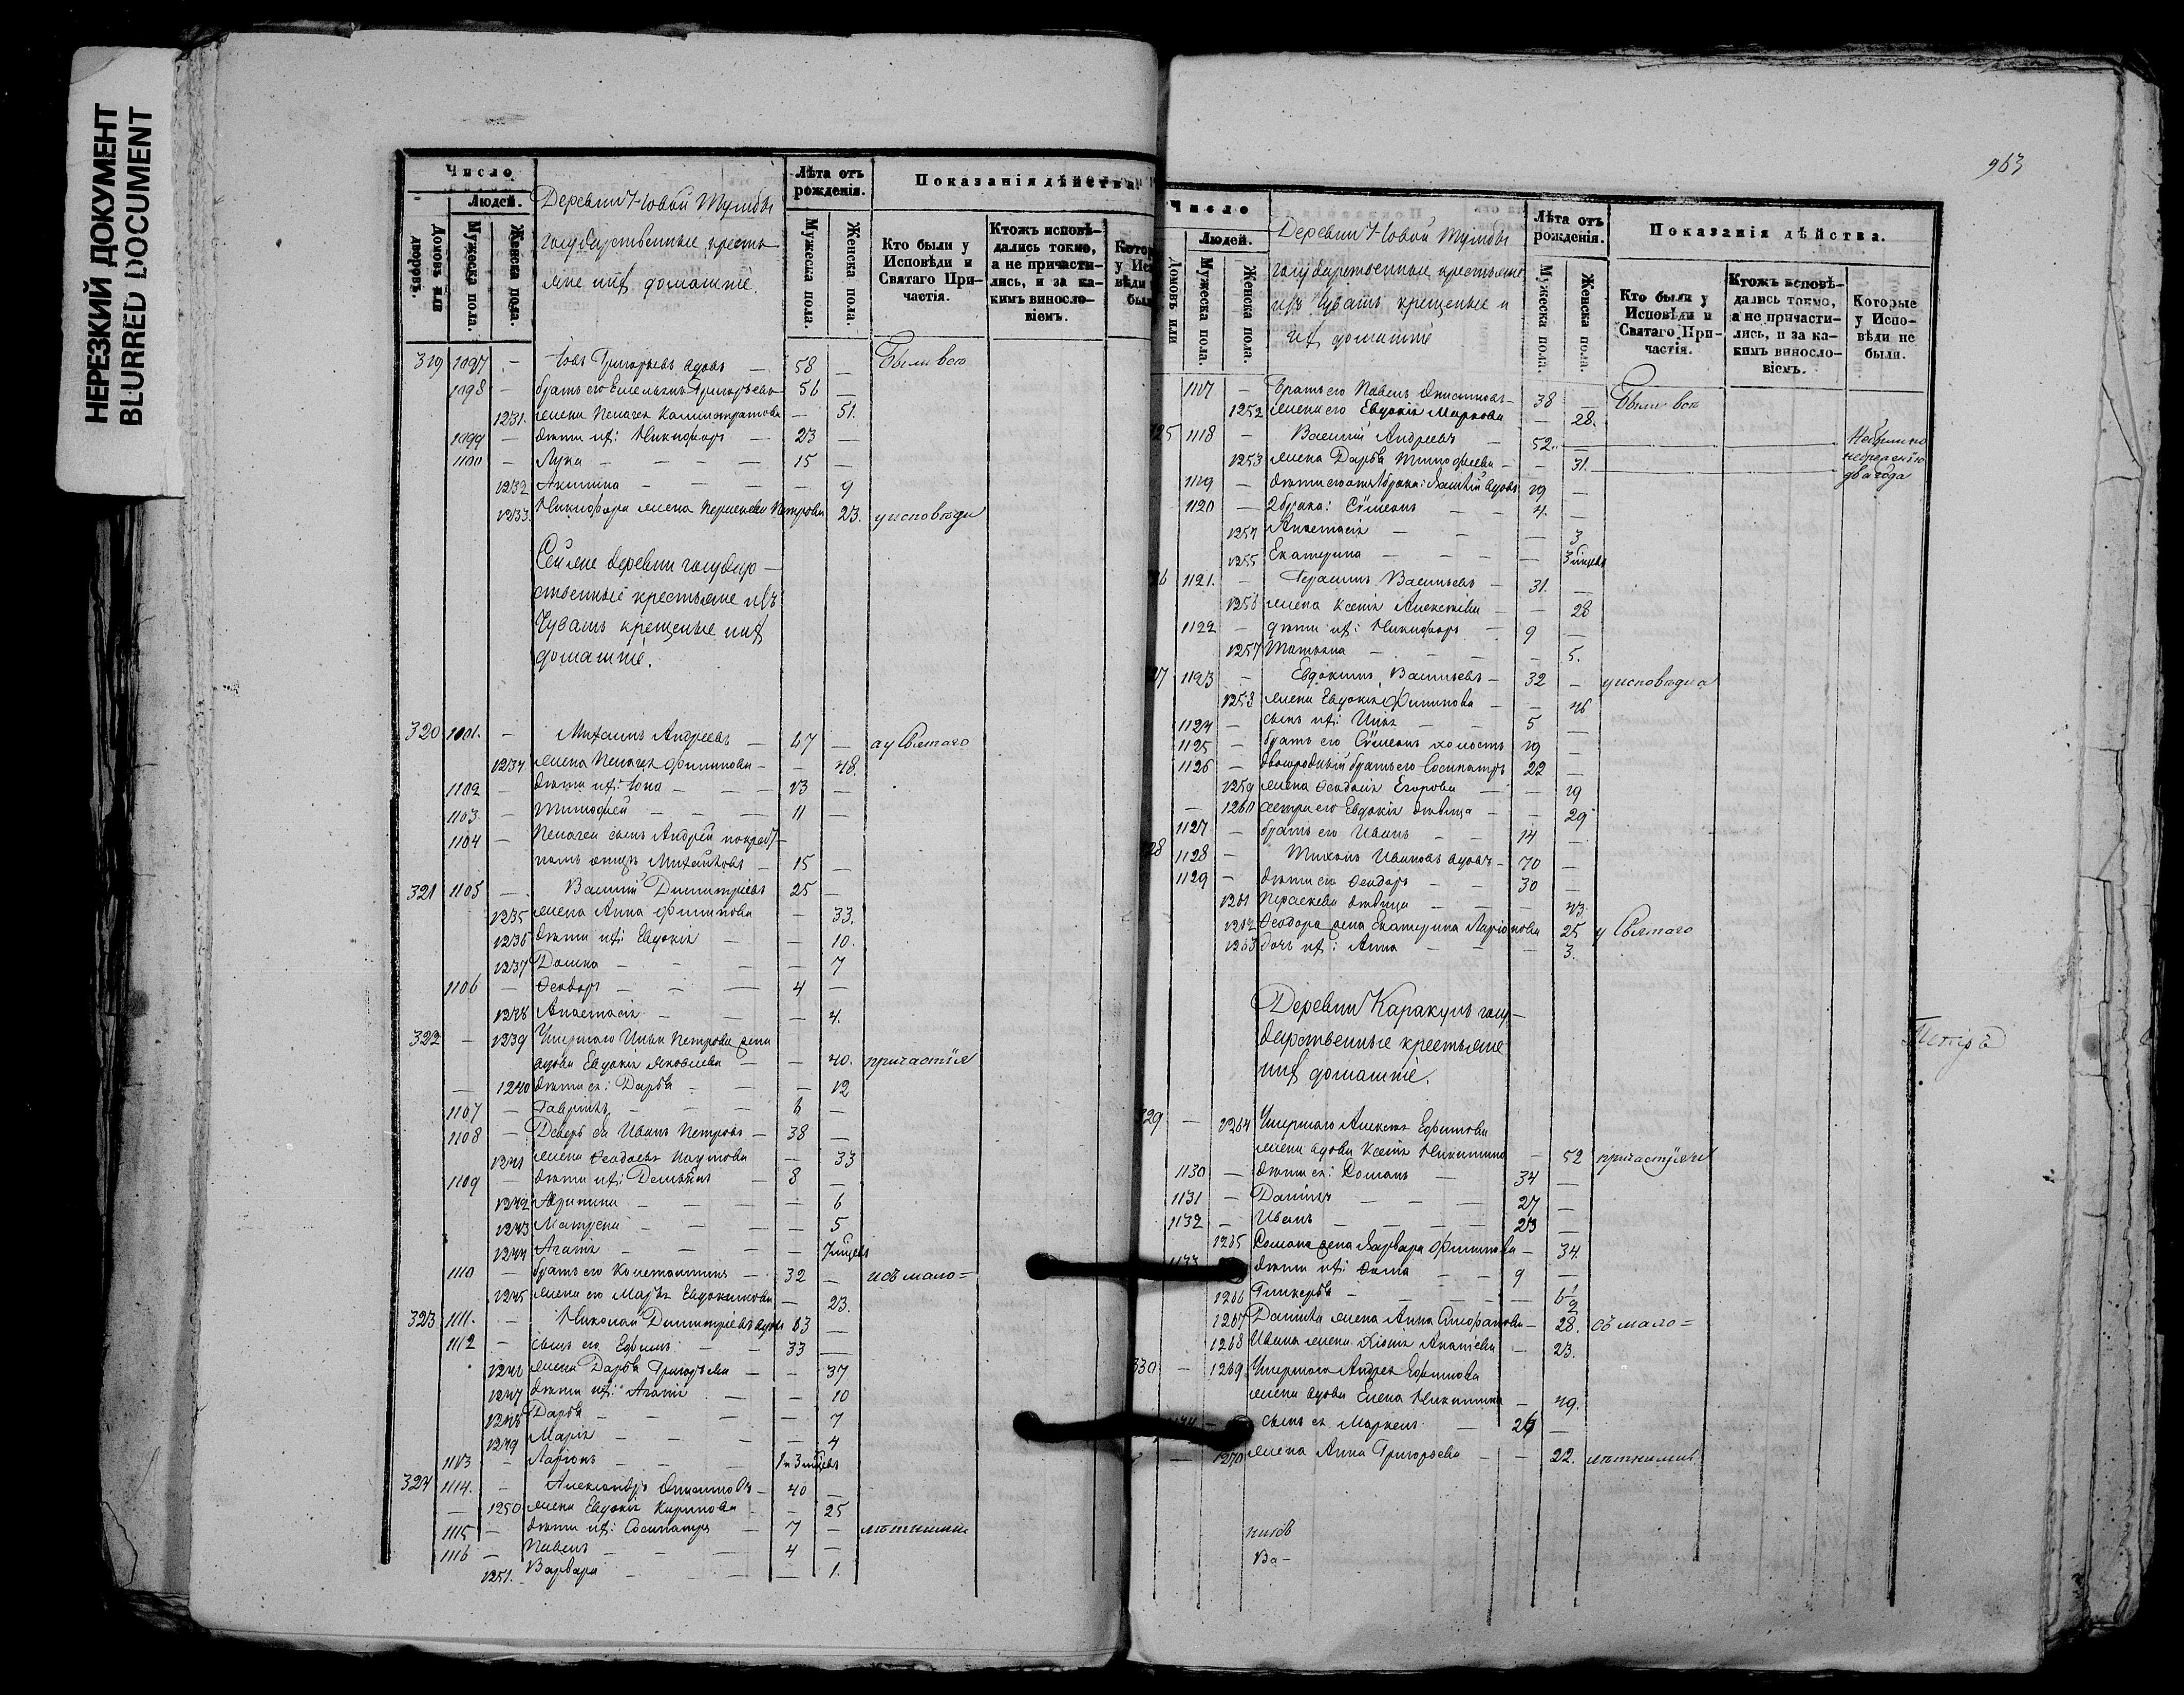 НЕРЕЗКИЙ ДОКУМЕНТ
BLURRED DOCUMENT
Число
Людей.
Домовъ или дворовъ.
Мужеска пола.
Женска пола.
Деревни Новой
государственные кресть-
яне ихъ домашніе.
Лѣта отъ рожденія.
Мужеска пола.
Женска пола.
Показанія дѣйства.
Кто были у Исповѣди и Святаго Причастія.
Ктожъ исповѣдались токмо, а не причастились, и за какимъ винословіемъ.
319 1097 - Іовъ Григорьевъ вдовъ - 58 - Были всѣ
1098 - братъ его Емельянъ Григорьевъ 56 -
1231. жена Пелагея Каллистратова - 51.
1099 - дѣти ихъ: Никифоръ - 23 -
1100 - Лука - 15 -
1232 Акилина - 9
1233 Никифора жена Параскева Петрова 23. у исповѣди
Сей же деревни государ-
ственные крестьяне изъ
Чувашъ крещеные ихъ
домашніе.
320 1101. - Михаилъ Андреевъ - 47 - а у Святаго
1234 жена Пелагея Филипова - 48.
1102 - дѣти ихъ: Іона - 13 -
1103 - Тимофей - 11 -
1104 - Пелагеи сынъ Андрей
Михайловъ - 15 -
321 1105 - Василій Димитріевъ 25 -
1235 жена Анна Филипова - 33.
1236 дѣти ихъ: Евдокія - 10.
1237 Домна - 7
1106 - Ѳеодоръ - 4 -
1238 Анастасія - 4.
322 - 1239 Умершаго Ильи Петрова жена
вдова Евдокія Яковлева - 40. причастія
- 1240 дѣти ея: Дарья - 12
1107 - Гавріилъ - 6 -
1108 - Деверь ея Иванъ Петровъ - 38 -
1241 жена Ѳеодосья Наумова - 33
1109 - дѣти ихъ: Демьянъ - 8 -
1242 Агрипина - 6
1243 Матрена - 5
1244 Агафія - 7 мцевъ
1110 - братъ его Константинъ - 32 - и съ мало=
1245 жена его Марья Евдокимова - 23.
323 1111. - Николай Димитріевъ вдовъ 63 -
1112 - сынъ его Ефимъ - 33 -
1246 жена Дарья Григорьева - 37
1247 дѣти ихъ: Агафія - 10
1248 Дарья - 7
1249 Марія - 4
1113 - Ларіонъ - 1 и 3 мцевъ
324 1114. - Александръ - 40 -
- 1250 жена Евдокія Карпова - 25
1115 - дѣти ихъ: Сосипатръ - 7 - лѣтними
1116 - Павелъ - 4 -
1251. Варвара - 1.
963
Число
Людей.
Домовъ или
Мужеска пола.
Женска пола.
Деревни Новой
государственные крестьяне
изъ Чувашъ крещеные и
ихъ домашніе
Лѣта отъ рожденія.
Мужеска пола.
Женска пола.
Показанія дѣйства.
Кто были у Исповѣди и Святаго Причастія.
Ктожъ исповѣдались токмо, а не причастились, и за какимъ винословіемъ.
Которые у Исповѣди не были.
1117 - Братъ его Павелъ - 38 - Были всѣ
1252 жена его Евдокія Маркова - 28.
25 1118 - Василій Андреевъ - 52. Не были по
1253 жена Дарья Тимофеева - 31. нераденію
два года
1119 - вдовъ 19 -
1120 - 2 брака: Сѵмеонъ - 4. -
1254 Анастасія - 3
1255 Екатерина - 3 мцевъ
26 1121. - Герасимъ Васильевъ - 31. -
1256 жена Ксенія Алексѣева - 28
1122 - дѣти ихъ: Никифоръ - 9 -
1257 Татьяна - 5.
27 1123 - Евдокимъ Васильевъ - 32 - у исповѣди а
1258 жена Евдокія Филипова - 46
1124 - сынъ ихъ: Илья - 5 -
1125 - братъ его Сѵмеонъ холостъ 19 -
1126 - двоюродный братъ его Сосипатръ 22 -
1259 жена Ѳеодосья Егорова - 19
- 1260 сестра его Евдокія дѣвица - 29
1127 - братъ его Иванъ - 14 -
28 1128 - Тихонъ Ивановъ вдовъ - 70 -
1129 - дѣти его Ѳеодоръ - 30 -
1261 Параскева дѣвица - 23.
1262 Ѳеодора жена Екатерина Ларіонова 25 у Святаго
1263 дочь ихъ: Анна - 3.
Деревни Каракулъ госу-
дарственные крестьяне
ихъ домашніе.
Петръ
329 - 1264 Умершаго Алексѣя Ефимова
жена вдова Ксенія Никитина - 52 причастія и
1130 - дѣти ея: Романъ - 34 -
1131 - Данилъ - 27 -
1132 - Иванъ - 23 -
1265 Романа жена Варвара Филипова - 34.
1133 дѣти ихъ: Ѳома - 9 -
1266 Гликерья - 6 1/2
1267 Данила жена Анна - 28. съ мало=
1268 Ивана жена - 23.
330 - 1269 Умершаго Андрея Ефимова
жена вдова Елена Никитина - 49.
1134 - сынъ ея Маркелъ - 26 -
- 1270 жена Анна Григорьева - 22. лѣтними
Ва-